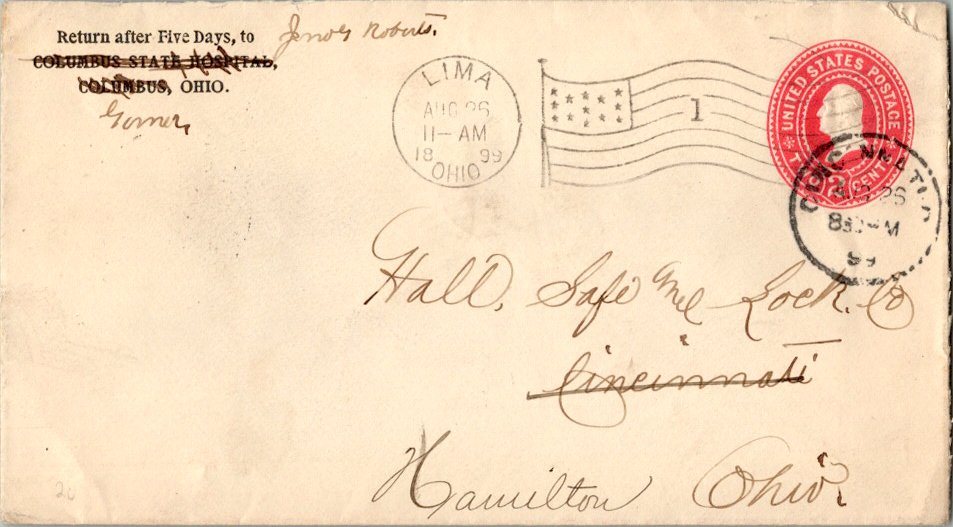 Return after Five Days, to
COLUMBUS STATE HOSPITAL,
COLUMBUS, OHIO.
Roberts.
Gomer,
LIMA
AUG 26
11-AM
18 99
OHIO
1
UNITED STATES POSTAGE
2 CENTS
CINCINNATI, O.
AUG 26
99
Hall, Safe and Lock. Co
Cincinnati
Hamilton Ohio.
20